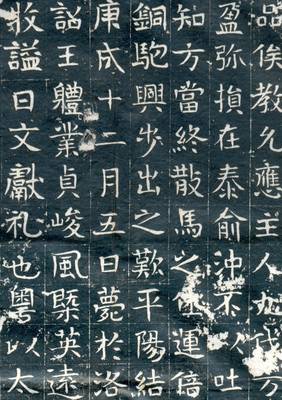 品俟教允應主人代万
盈弥損在泰俞沖不以吐
知方當終散馬之運倍
銅駝興步出之歎平陽結
庚戌十二月五日薨於洛
詔王體業貞峻風槩英遠
牧諡曰文獻礼也粵以太